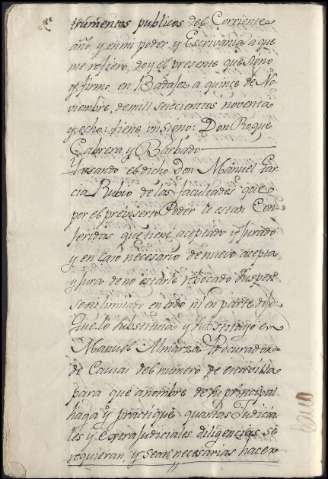 trumentos publicos del Corriente
año y en mi poder, y Escrivania a que
me refiero, doy el presente que signo
y firmo, en Badajoz a quince de No
viembre, de mil setecientos noventa
y ocho: tiene un signo: Don Roque
Cabrera y Barbado
Y usando el dicho Don Manuel Gar
cia Rubio de las facultades que
por el preinserto Poder le estan Con
feridas que tiene aceptado y jurado
y en caso necesario de nuevo acepta
y jura de no estarle rebocado suspen
so ni limitado en todo ni en parte
que lo substituia y substituyo en
Manuel Almarza Procurador
de Causas del numero de
para que a nombre de su principal
haga y practique quantas Judicia
les y Extrajudiciales diligencias se
requieran, y sean necesarias hacer